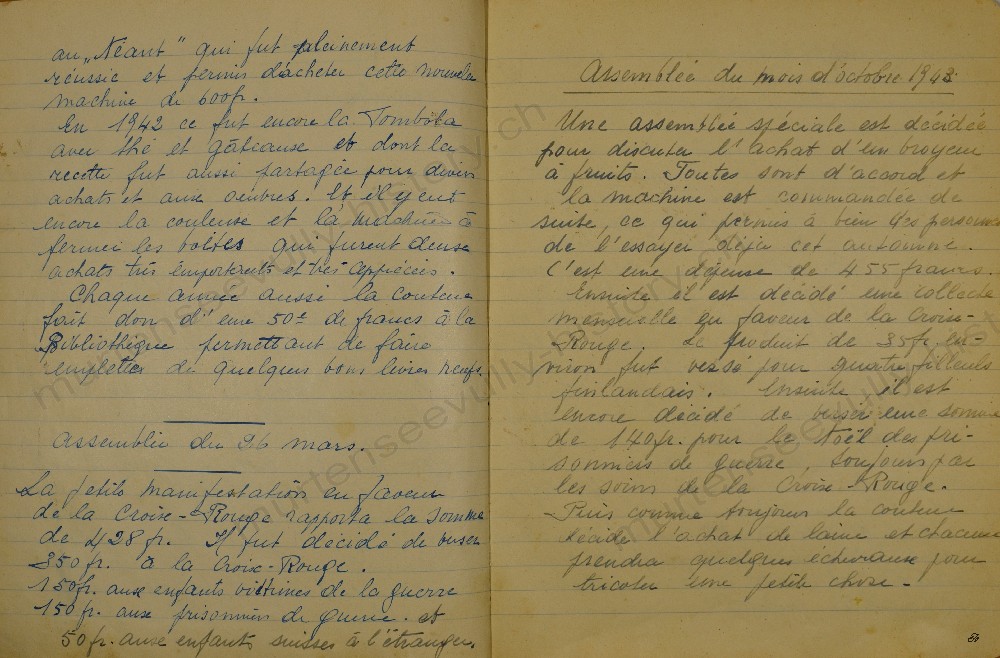 au „Néant" qui fut pleinement
réussie et permis d'acheter cette nouvelle
machine de 600fr.
En 1942 ce fut encore la Tombola
avec thé et gâteause et dont la
recette fut aussi partagée pour divers
achats et aux œuvres. Et il y eut
encore la couleuse et la machine à
fermer les boîtes qui furent deuse
achats très importants et très appréciés.
Chaque année aussi la couture
fait don d'une 50e de francs à la
Bibliothèque permettant de faire
emplette de quelques bons livres neufs.
Assemblée du 26 mars.
La petite manifestation en faveur
de la Croix-Rouge rapporta la somme
de 428 fr. Il fut décidé de verser
350 fr. à la Croix-Rouge.
150 fr. aux enfants victimes de la guerre
150 fr. aux prisonniers de guerre. et
50 fr. aux enfants suisses à l'étranger.
Assemblée du mois d'octobre 1943.
Une assemblée spéciale est décidée
pour discuter l'achat d'un broyeur
à fruits. Toutes sont d'accord et
la machine est commandée de
suite, ce qui permis à bien des personnes
de l'essayer déjà cet automne.
C'est une dépense de 455 francs.
Ensuite il est décidé une collecte
mensuelle en faveur de la Croix-
Rouge. Le produit de 35fr. en-
viron fut versé pour quatre filleuls
finlandais. Ensuite il est
encore décidé de verser une somme
de 140fr. pour le Noël des pri-
sonniers de guerre, toujours par
les soins de la Croix-Rouge.
Puis comme toujours la couture
décide l'achat de laine et chacune
prendra quelques écheveause pour
tricoter une petite chose.
murtenseevully-history.ch